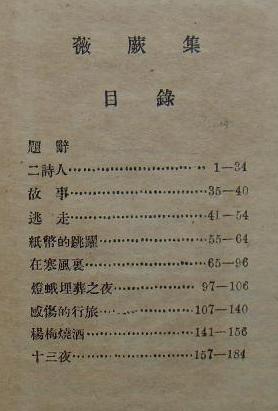 薇蕨集
目錄
題辭
二詩人⋯⋯⋯⋯⋯⋯⋯1—34
故事⋯⋯⋯⋯⋯⋯⋯35—40
逃走⋯⋯⋯⋯⋯⋯⋯41—54
紙幣的跳躍⋯⋯⋯⋯⋯55—64
在寒風裏⋯⋯⋯⋯⋯⋯65—96
燈蛾埋葬之夜⋯⋯⋯⋯97—106
感傷的行旅⋯⋯⋯⋯⋯107—140
楊梅燒酒⋯⋯⋯⋯⋯⋯141—156
十三夜⋯⋯⋯⋯⋯⋯⋯157—184